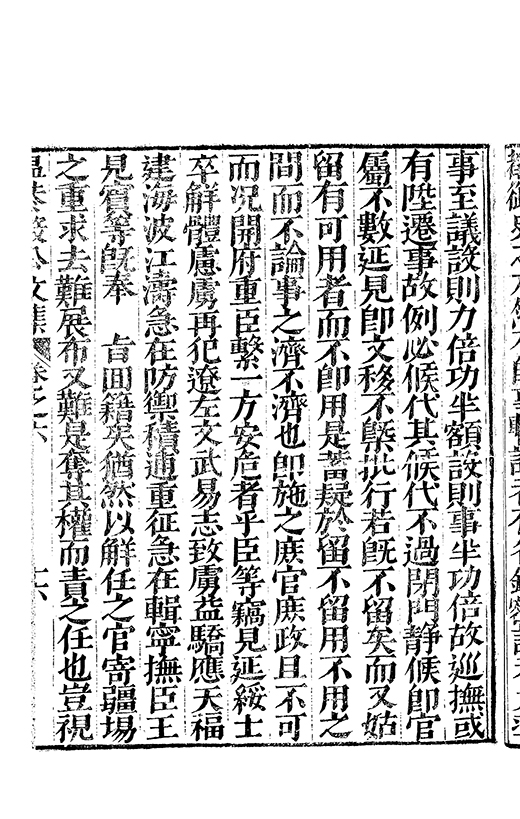 事至議設則力倍功半額設則事半功倍故巡撫或
有陞遷事故例必候代其候代不過閉門靜候卽官
屬不數延見卽文移不槩批行若旣不留矣而又姑
留有可用者而不卽用是蓄疑於留不留用不用之
間而不論事之濟不濟也卽施之庶官庶政且不可
而況開府重臣繫一方安危者乎臣等竊見延綏士
卒解體慮虜再犯遼左文武易志致虜益驕應天福
建海波江濤急在防禦積逋重征急在輯寧撫臣王
見賓等旣奉　旨回籍矣猶然以解任之官寄疆場
之重求去難展布又難是奪其權而責之任也豈視
溫恭毅公文集 卷之六 十六